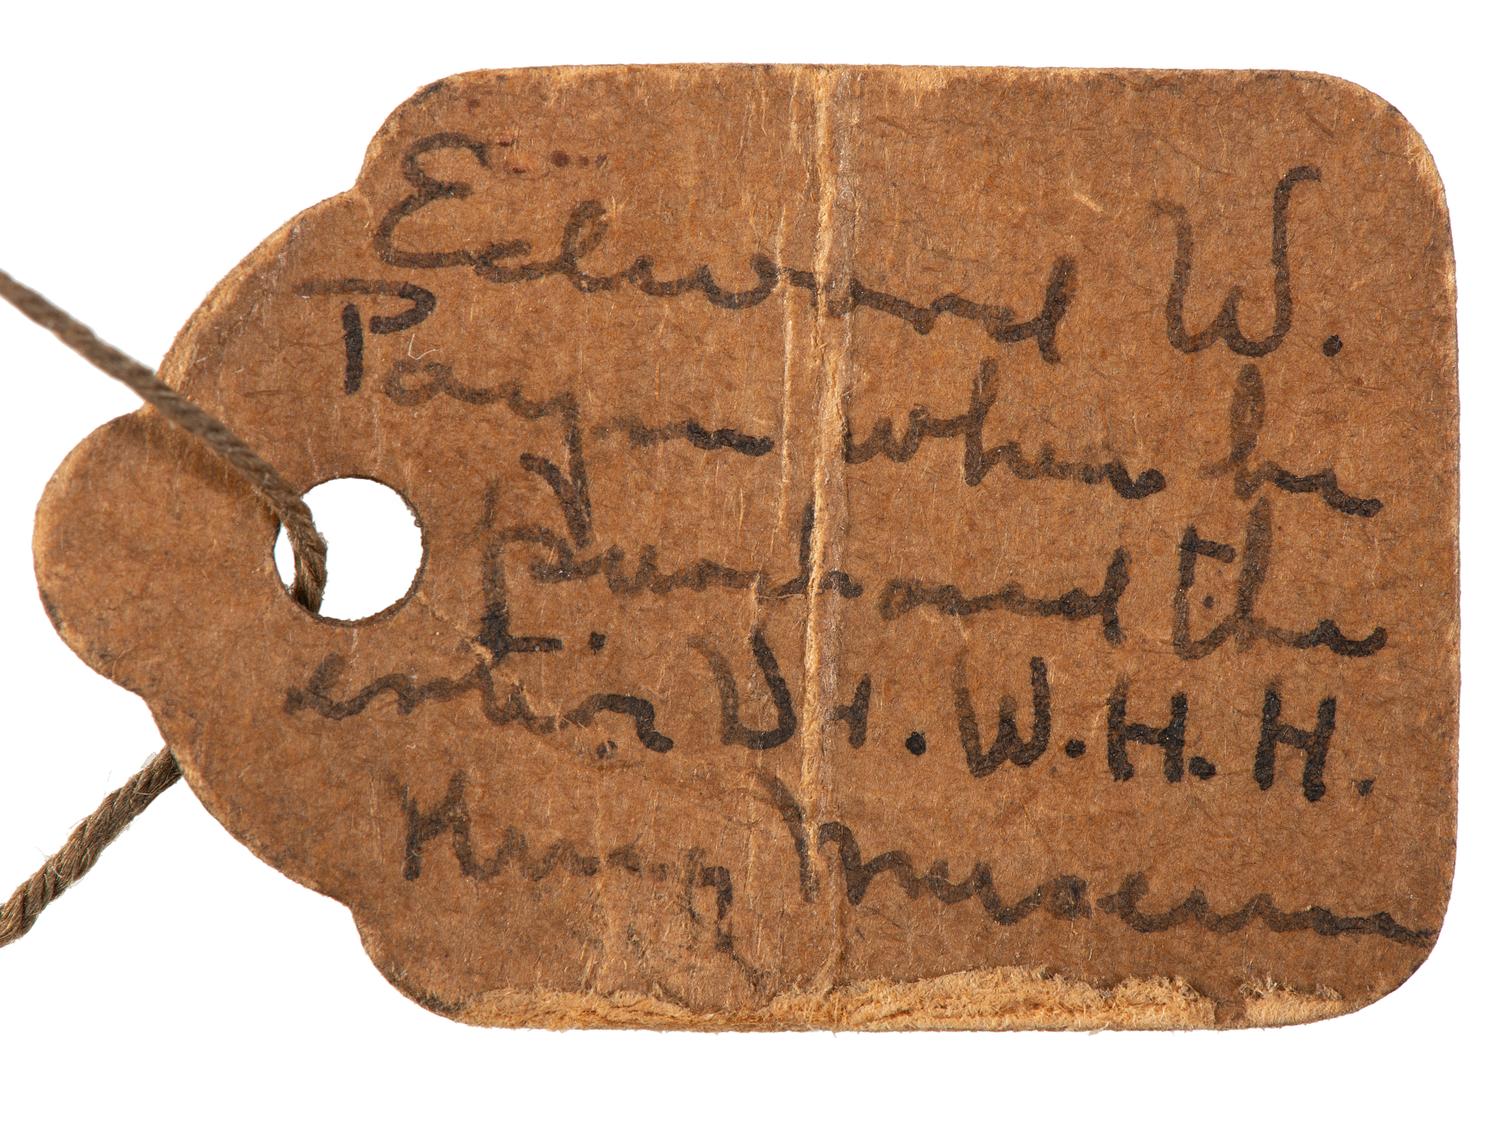 Edward W.
Payne when he
purchased the
entire Dr. W. H. H.
King Museum